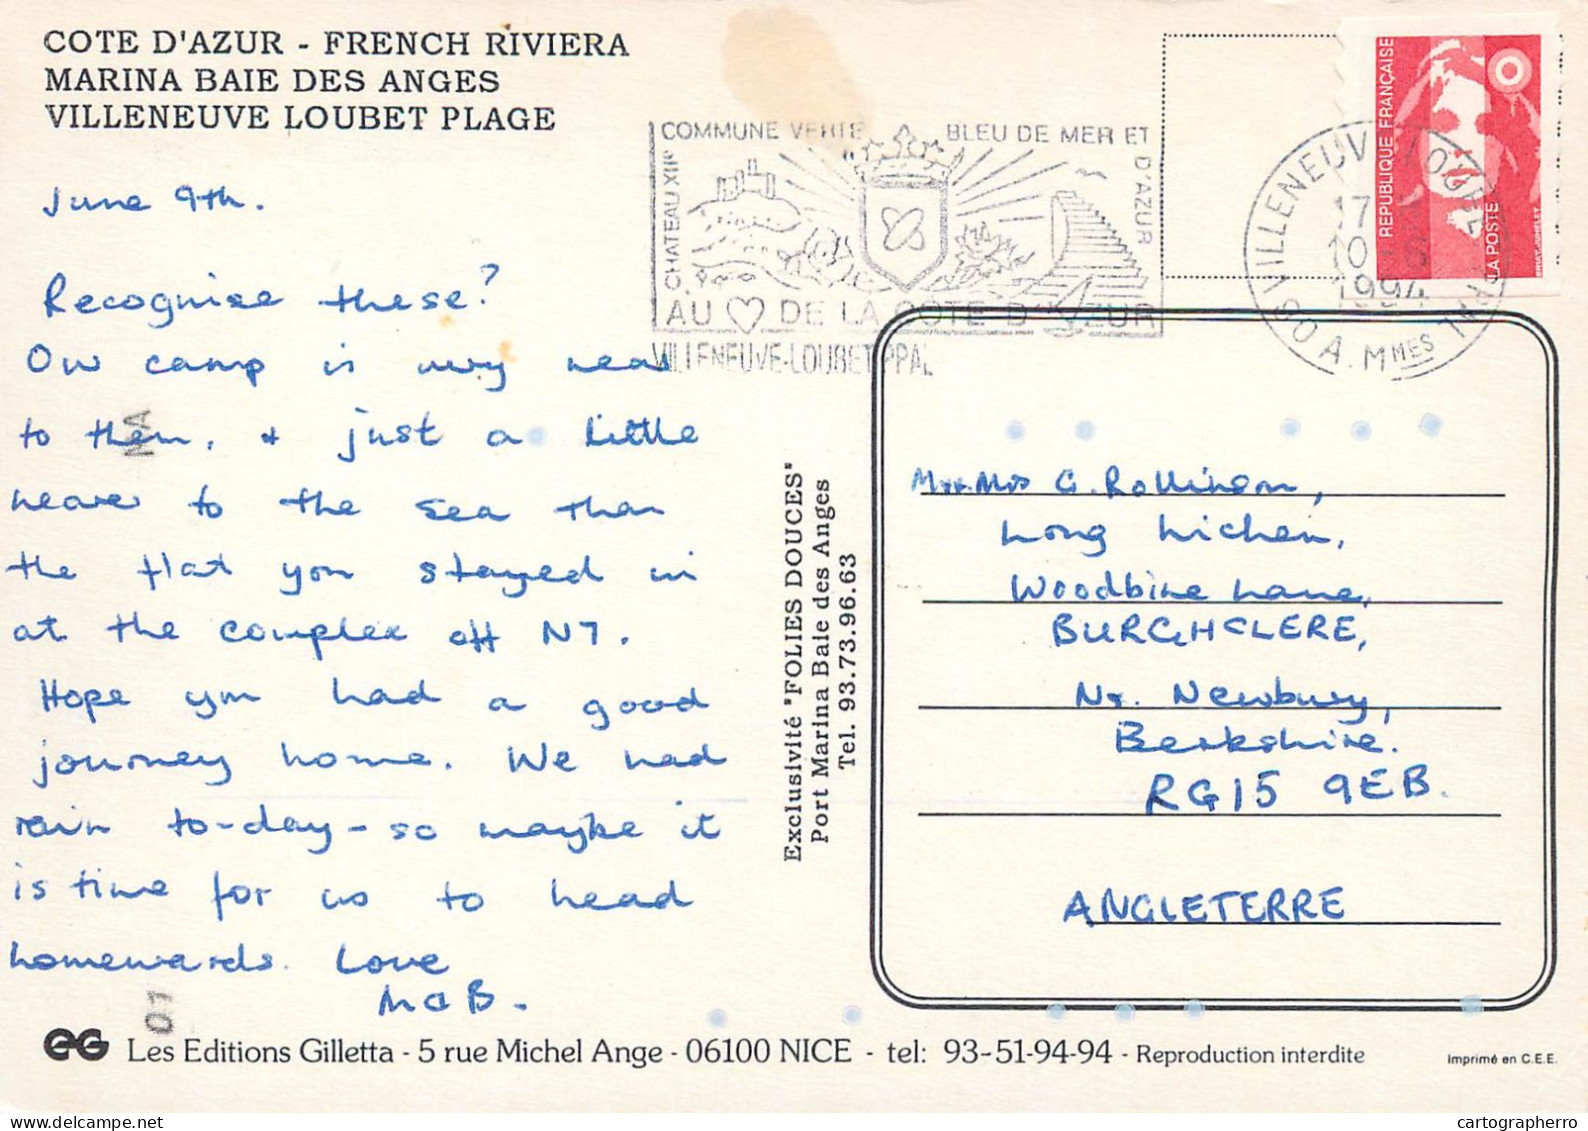 COTE D'AZUR - FRENCH RIVIERA
MARINA BAIE DES ANGES
VILLENEUVE LOUBET PLAGE
COMMUNE VERTE BLEU DE MER ET
D'AZUR
CHATEAU XIIe
AU DE LA COTE D'AZUR
VILLENEUVE-LOUBET PPAL
VILLENEUVE LOUBET PPAL
17
10-6
1994
06 A.MMES
REPUBLIQUE FRANÇAISE
LA POSTE
June 9th.
Recognise these?
Our camp is very near
to them, + just a little
nearer to the sea than
the flat you stayed in
at the complex off N7.
Hope you had a good
journey home. We had
rain to-day - so maybe it
is time for us to head
homewards. Love
M & B.
Exclusivité "FOLIES DOUCES"
Port Marina Baie des Anges
Tel. 93.73.96.63
Mr + Mrs G. Rollinson,
Long Lichen,
Woodbine Lane,
BURGHCLERE,
Nr. Newbury,
Berkshire.
RG15 9EB.
ANGLETERRE
MA
01
EG Les Editions Gilletta - 5 rue Michel Ange - 06100 NICE - tel: 93-51-94-94 - Reproduction interdite
Imprimé en C.E.E.
cartographerro